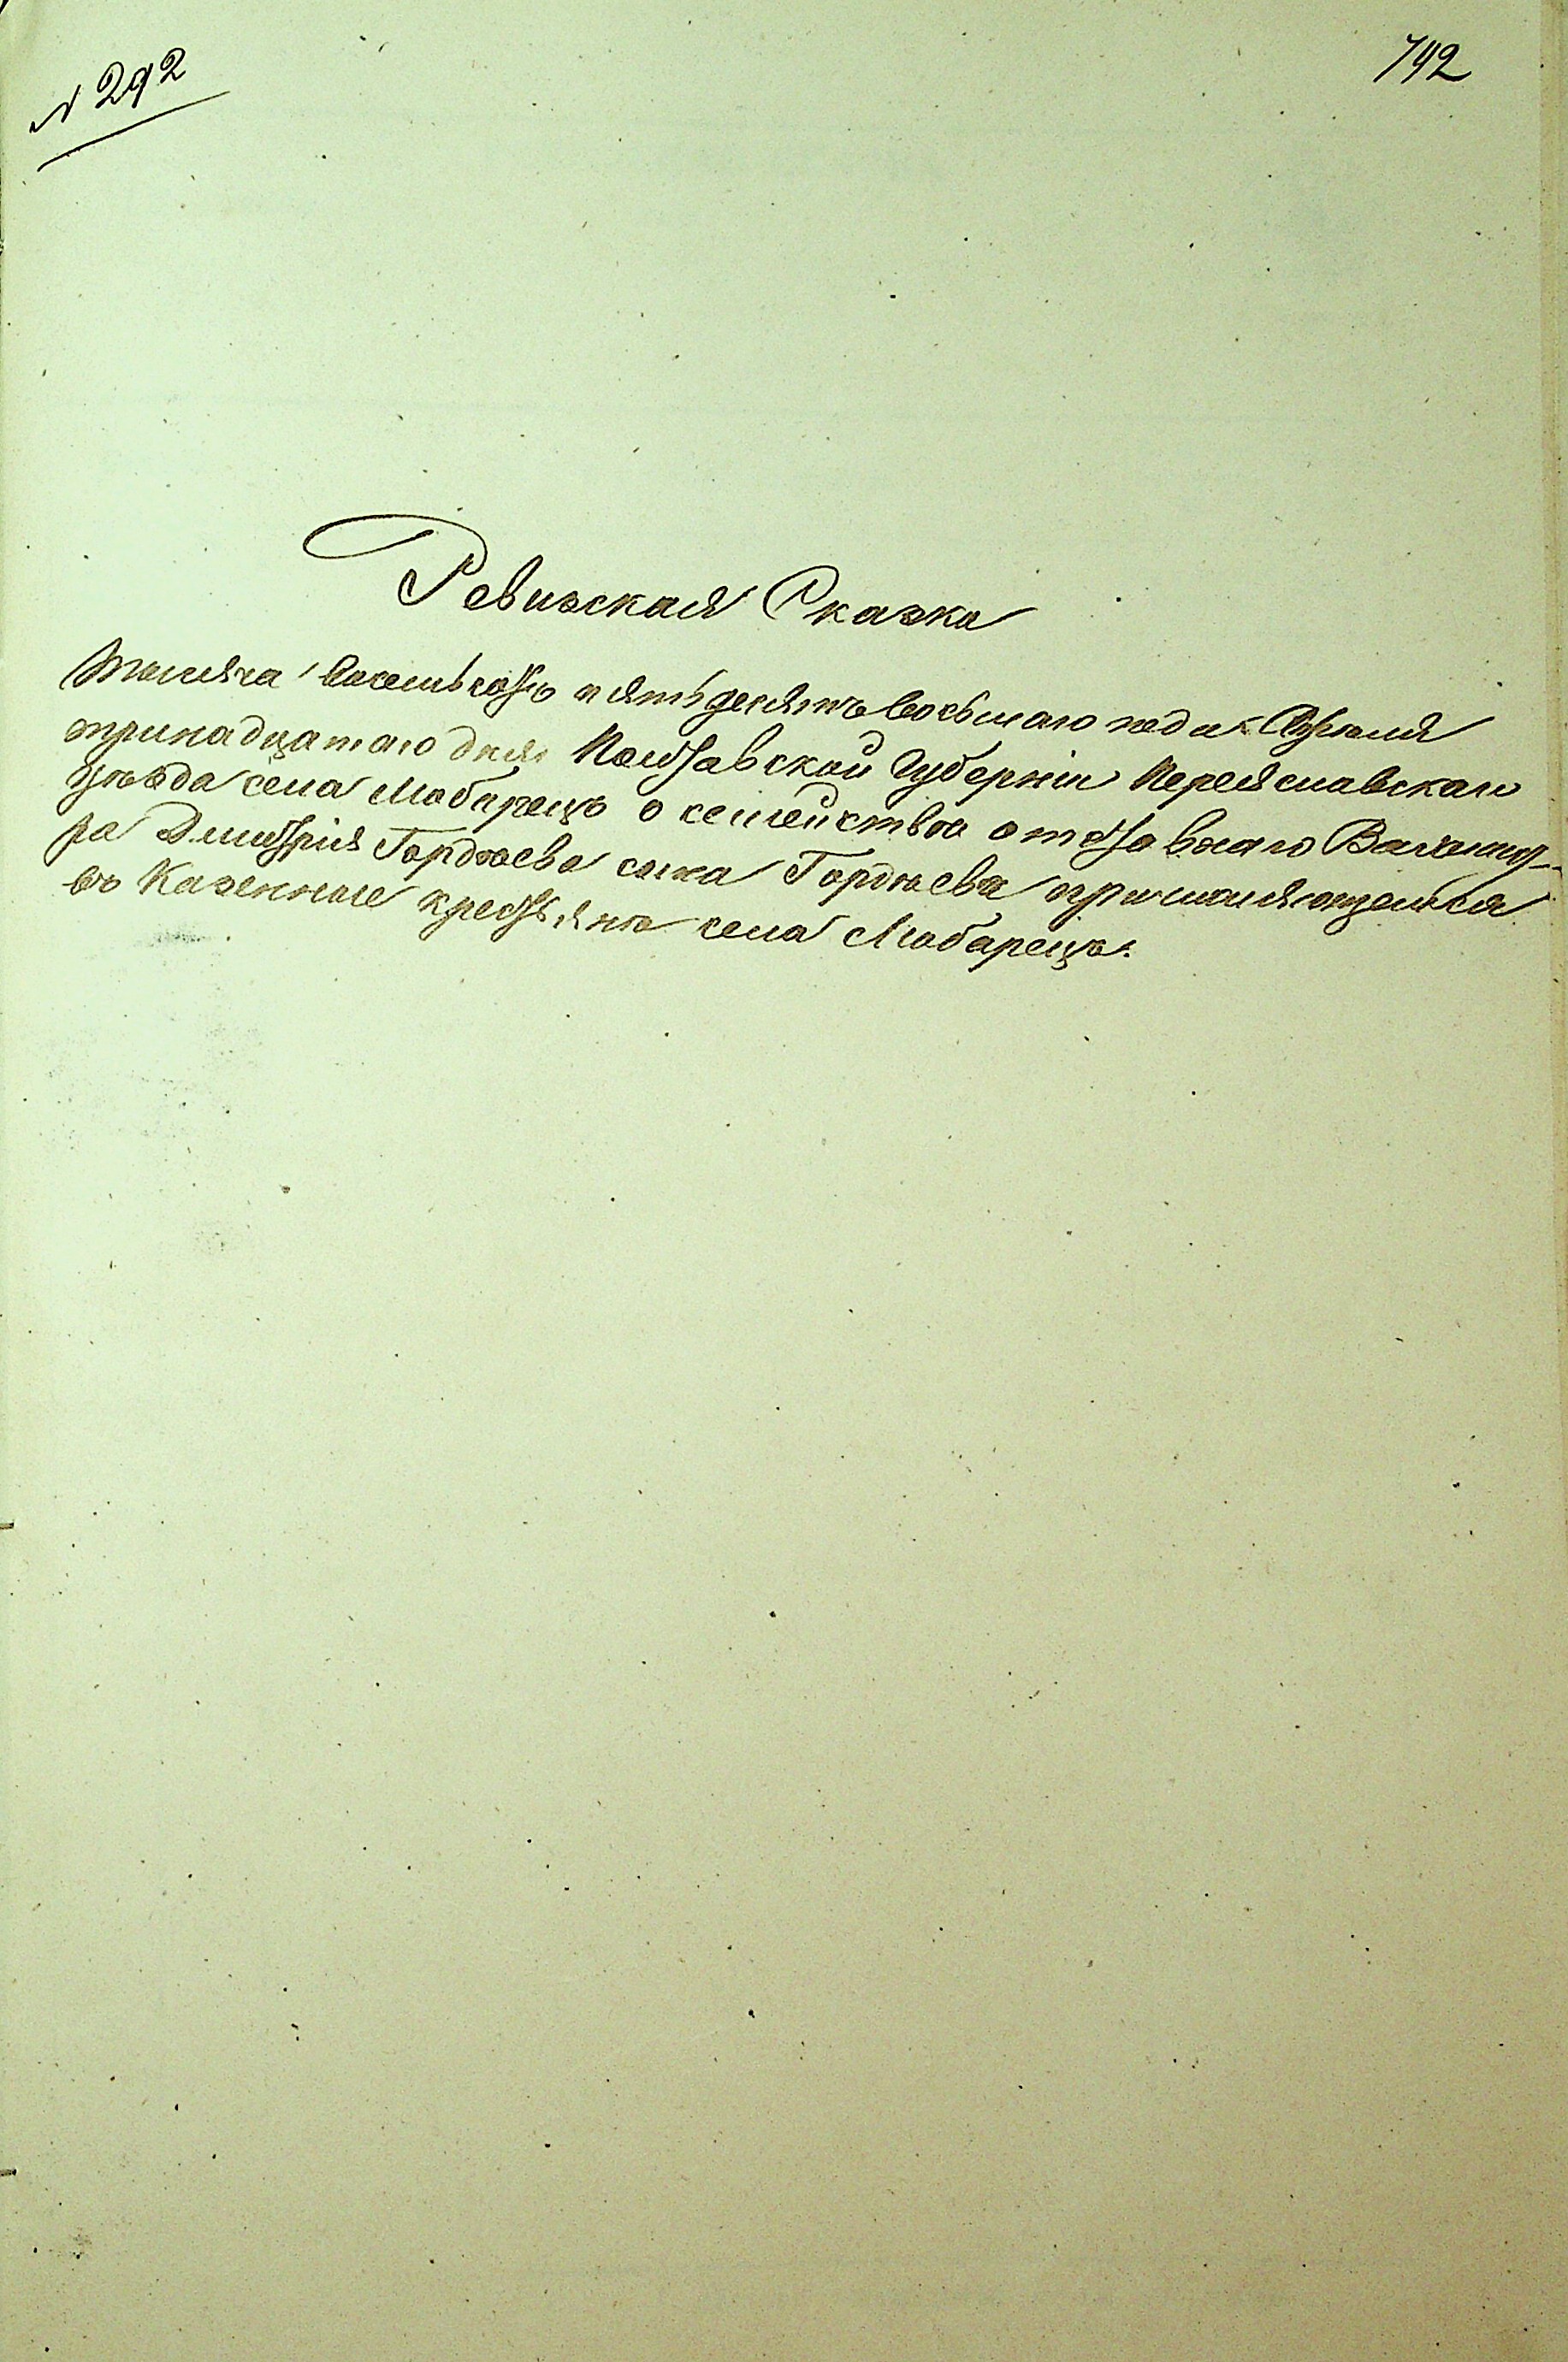 № 292
792
Ревизская Сказка
Тысяча восемьсотъ пятьдесятъ восьмаго года Апреля
тринадцатаго дня Полтавской Губерніи Переяславскаго
уѣзда села Любарецъ о семействѣ отставнаго Вахмист-
ра Дмитрія Гордѣева сына Гордѣева причисляющемся
въ Казенные крестьяне села Любарецъ.